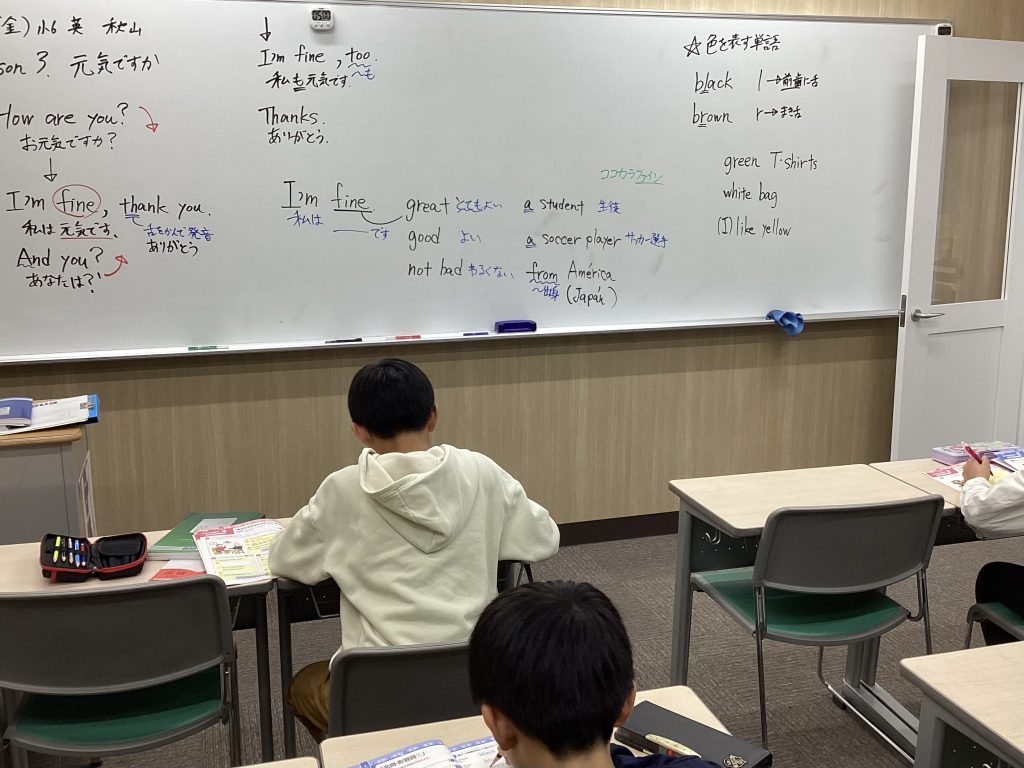 (金) 小6 英 秋山
son 3. 元気ですか
How are you?
お元気ですか?
I'm fine, thank you.
私は元気です、
舌をかんで発音
ありがとう
And you?
あなたは?
05:00
I'm fine, too.
私も元気です. 〜も
Thanks.
ありがとう.
I'm fine
私は ― です
great とてもよい
good よい
not bad わるくない
ココカラファイン
a student 生徒
a soccer player サッカー選手
from América
〜出身 (Japán)
☆色を表す単語
black l→前歯に舌
brown r→まき舌
green T-shirts
white bag
(I) like yellow